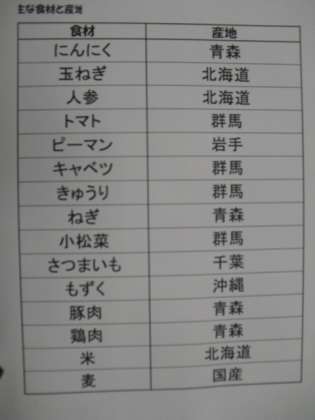 主な食材と産地
食材 産地
にんにく 青森
玉ねぎ 北海道
人参 北海道
トマト 群馬
ピーマン 岩手
キャベツ 群馬
きゅうり 群馬
ねぎ 青森
小松菜 群馬
さつまいも 千葉
もずく 沖縄
豚肉 青森
鶏肉 青森
米 北海道
麦 国産